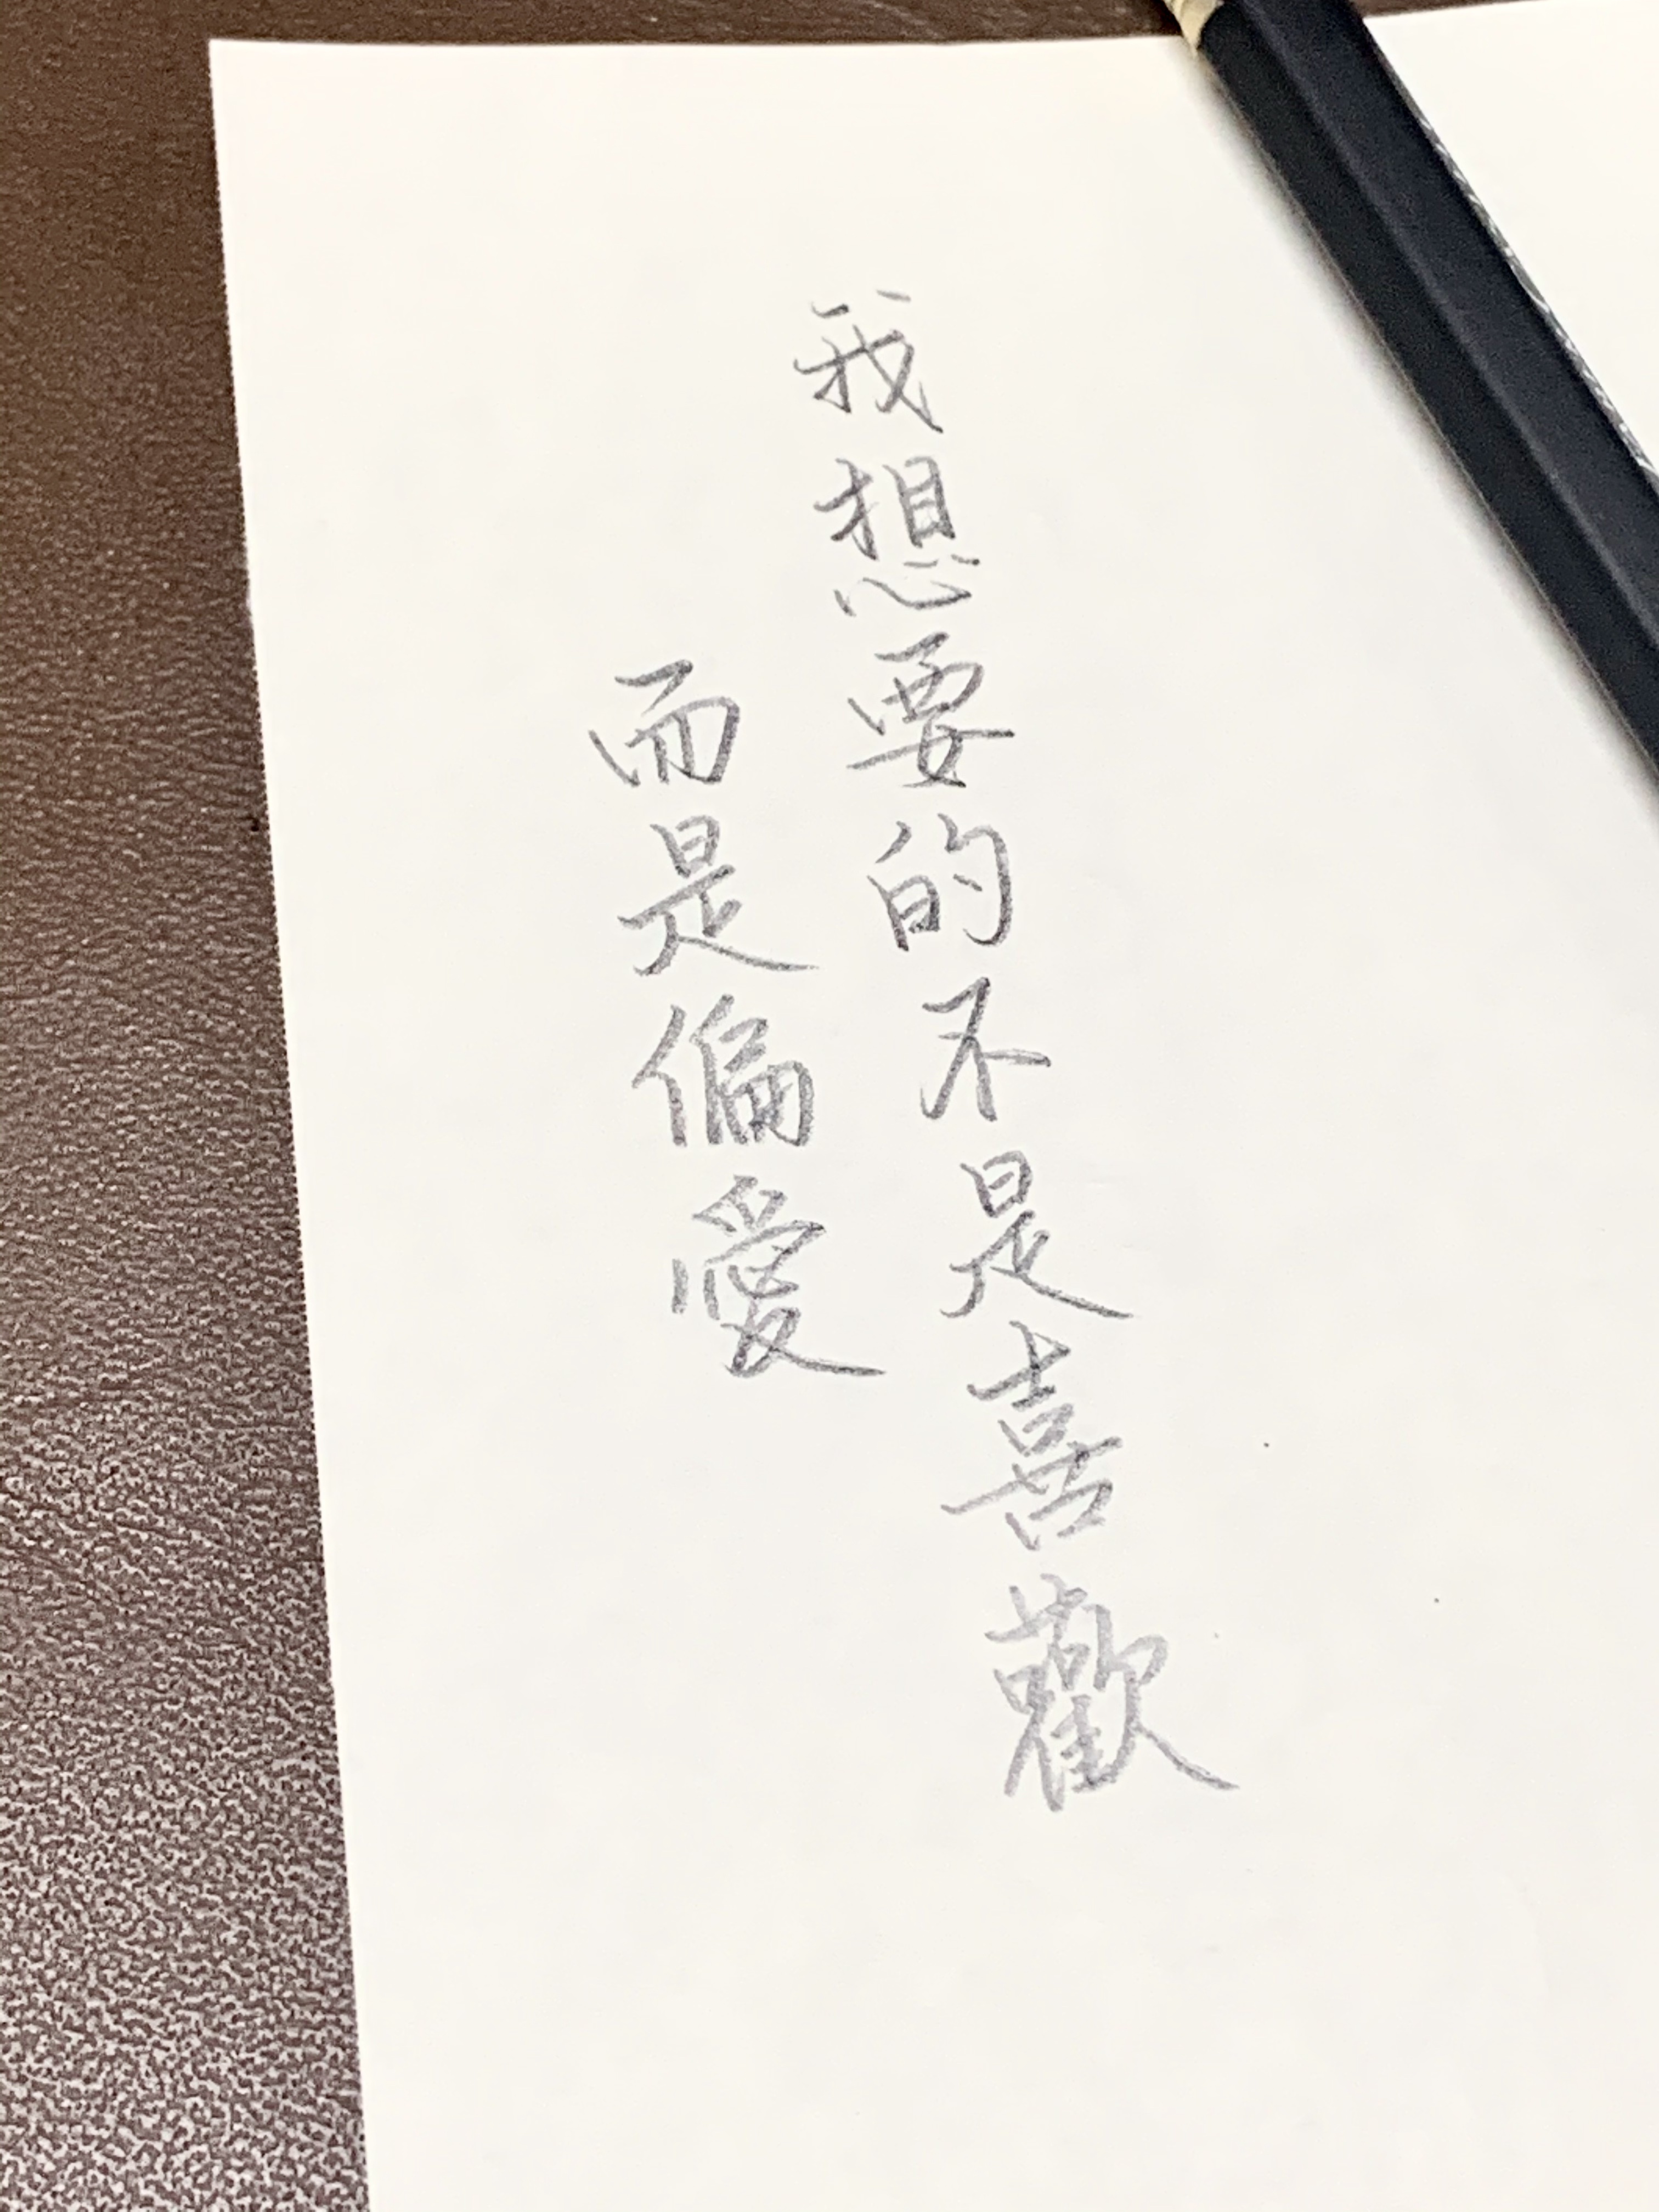 我想要的不是喜歡
而是偏愛